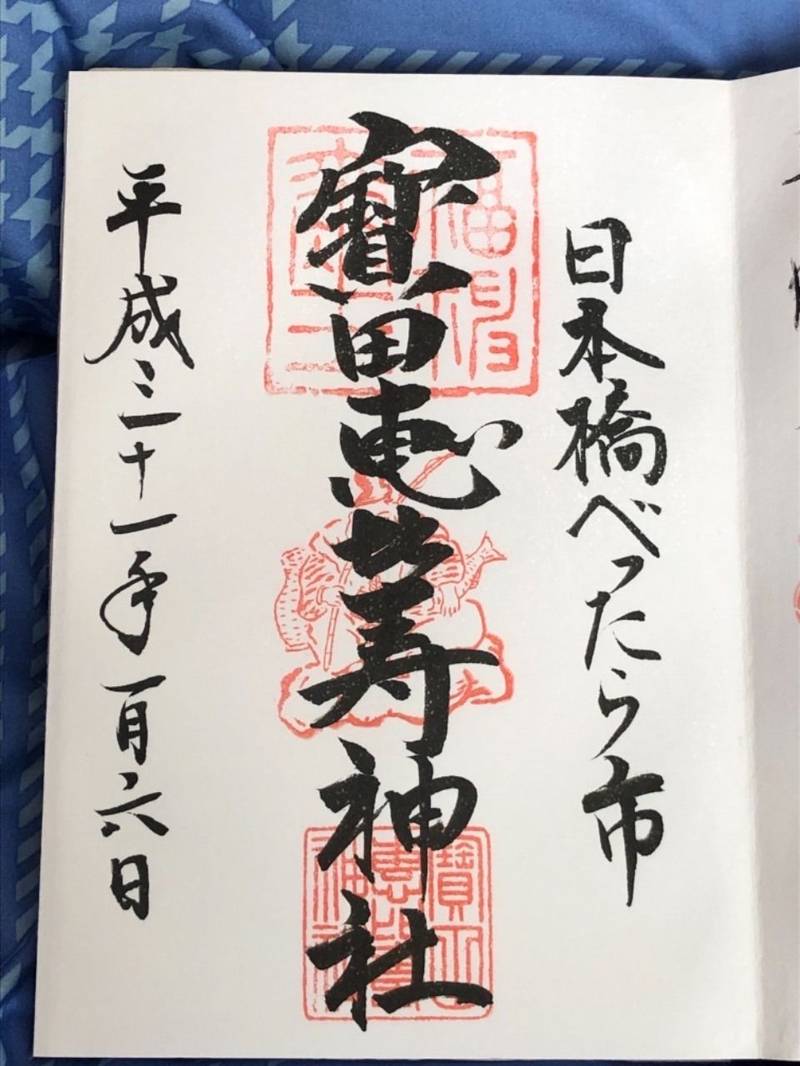 日本橋べったら市
寳田恵比寿神社
平成三十一年一月六日